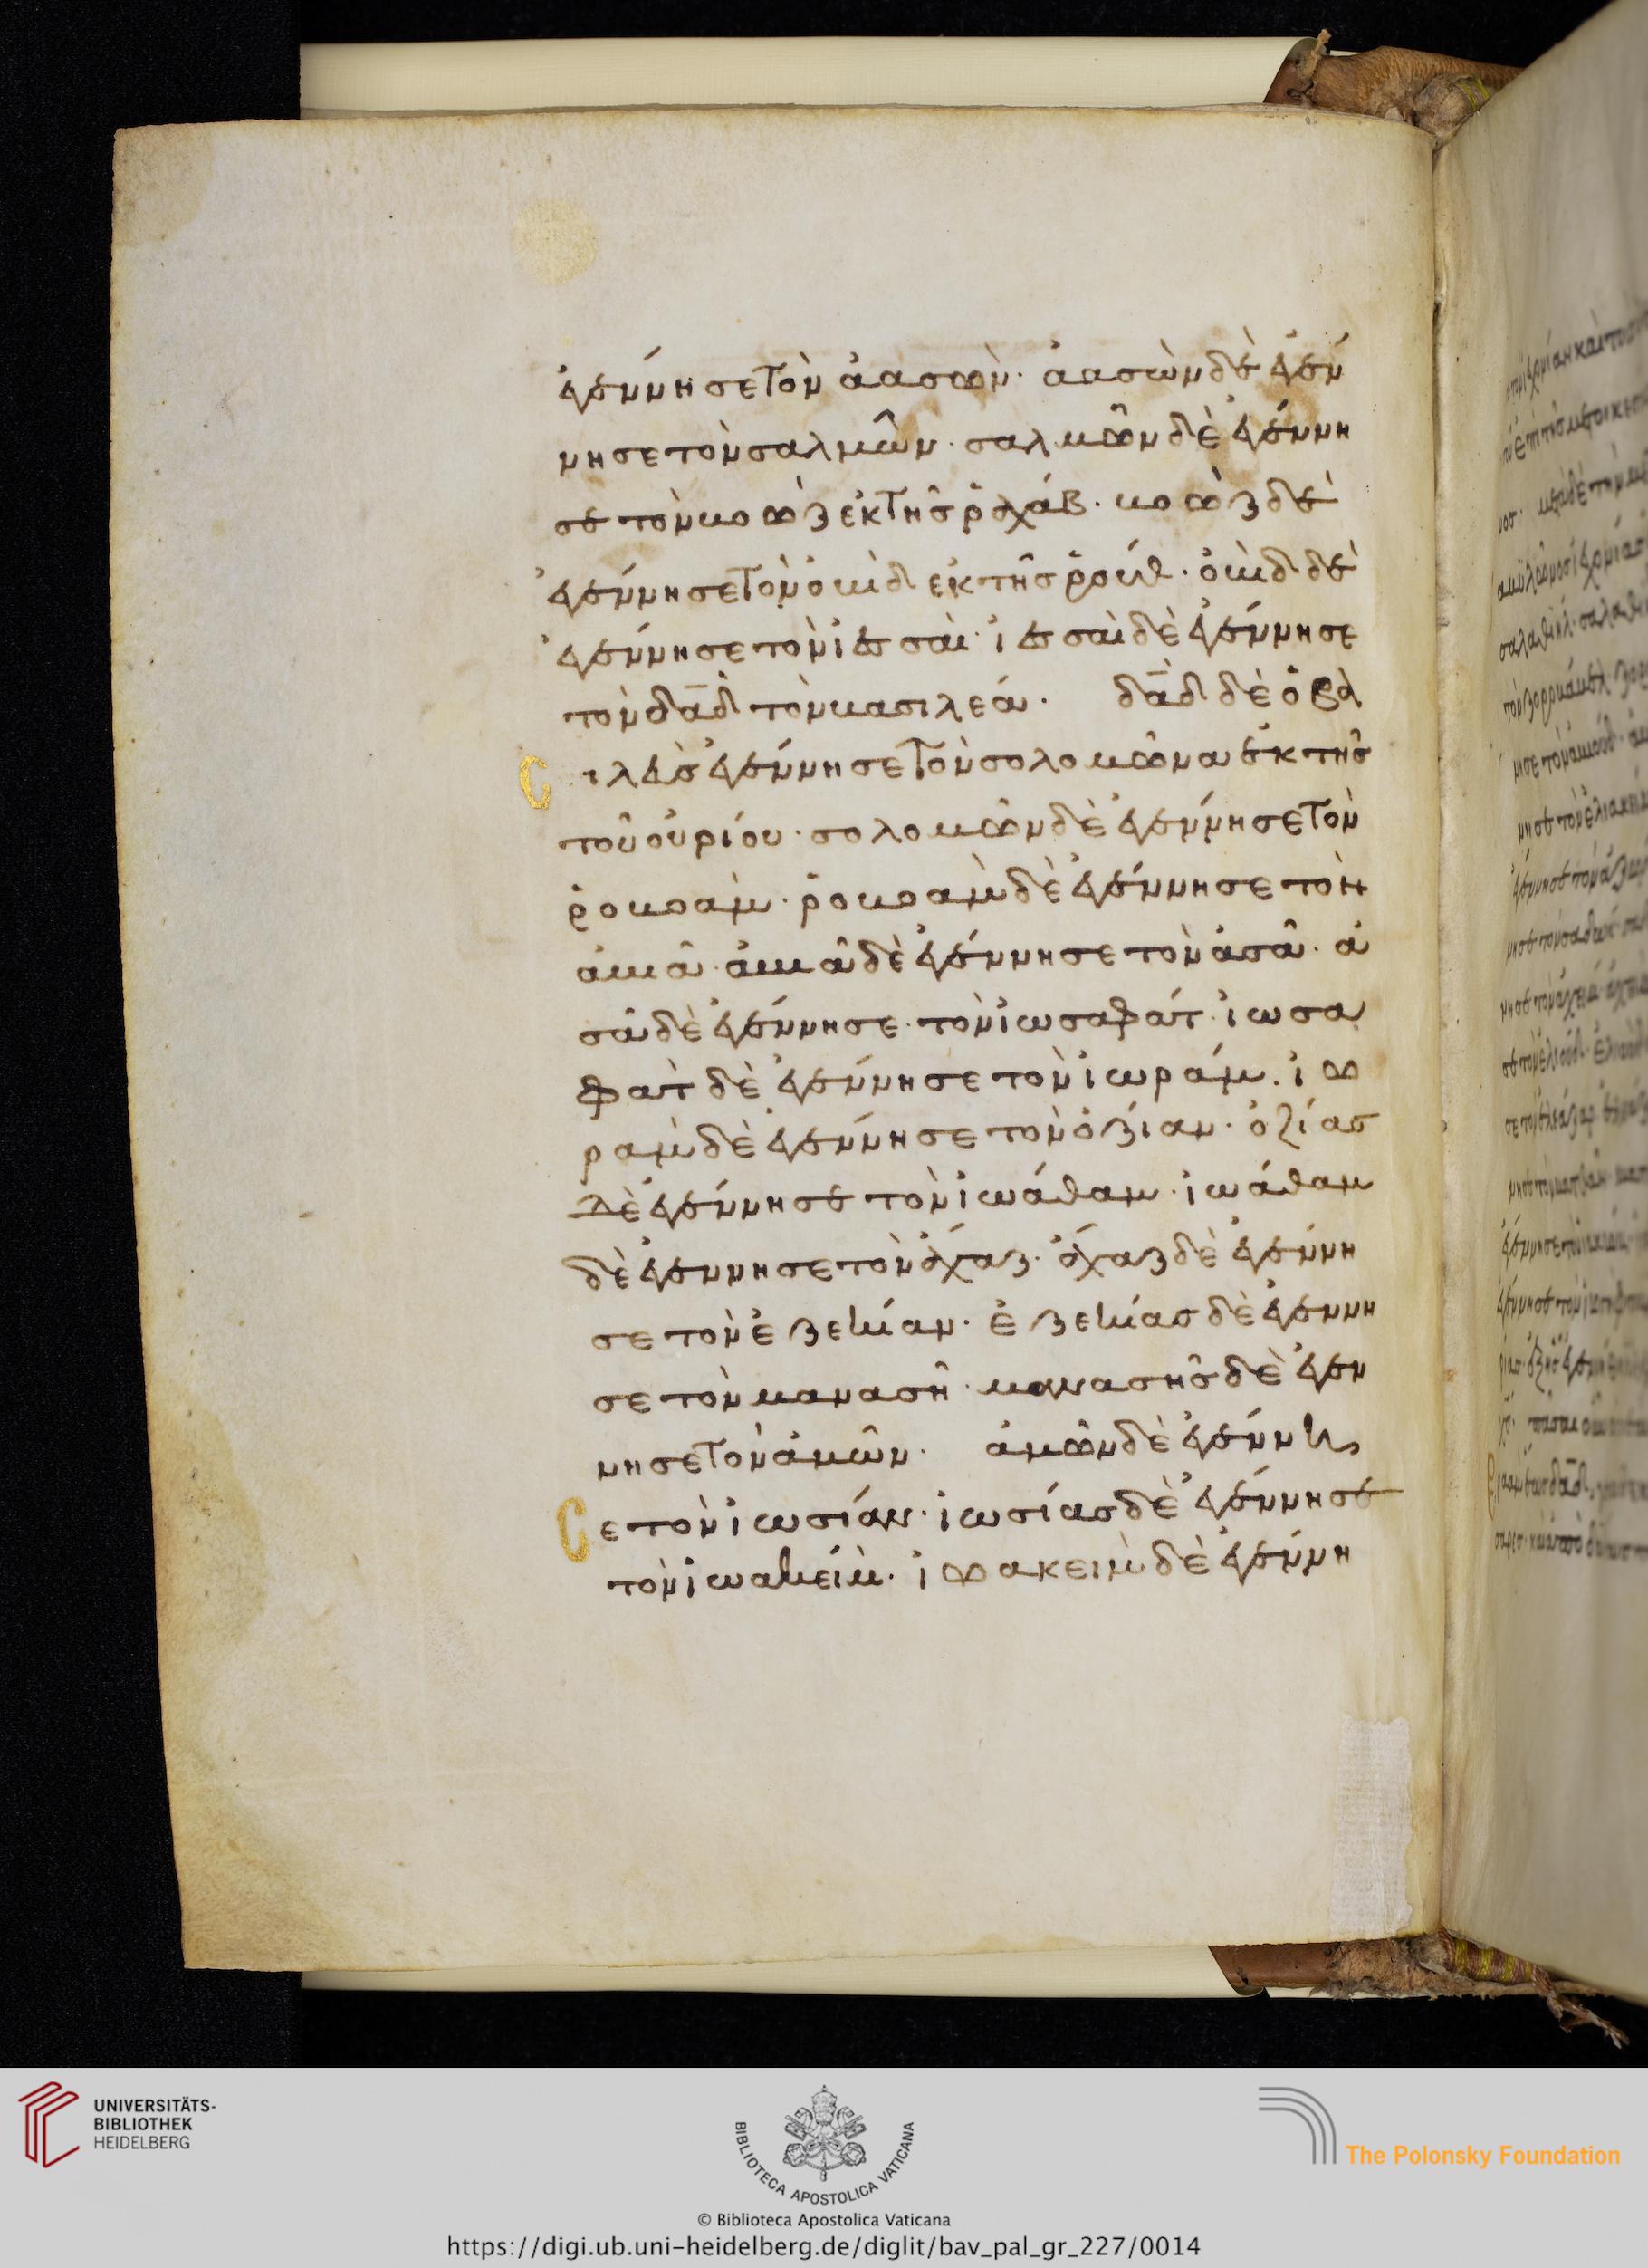 ἐγέννησε τὸν ἀασὼν· ἀασὼν δὲ ἐγέν
νησε τὸν σαλμῶν· σαλμῶν δὲ ἐγέννη
σε τὸν βοὼζ ἐκ τῆς ῥαχάβ· βοὼζ δὲ
ἐγέννησε τὸν ὀβὶδ ἐκ τῆς ῥούθ· ὀβὶδ δὲ
ἐγέννησε τὸν ἰεσσαὶ· ἰεσσαὶ δὲ ἐγέννησε
τὸν δᾱδ τὸν βασιλέα· δᾱδ δὲ ὁ βα
σιλεὺς ἐγέννησε τὸν σολομῶνα ἐκ τῆς
τοῦ οὐρίου· σολομῶν δὲ ἐγέννησε τὸν
ῥοβοάμ· ῥοβοὰμ δὲ ἐγέννησε τὸν
ἀβιᾶ· ἀβιᾶ δὲ ἐγέννησε τὸν ἀσᾶ· ἀ
σᾶ δὲ ἐγέννησε· τὸν ἰωσαφάτ· ἰωσα
φὰτ δὲ ἐγέννησε τὸν ἰωράμ· ἰω
ρὰμ δὲ ἐγέννησε τὸν ὀζίαν· ὀζίας
δὲ ἐγέννησε τὸν ἰωάθαμ· ἰωάθαμ
δὲ ἐγέννησε τὸν ἄχαζ· ἄχαζ δὲ ἐγέννη
σε τὸν ἐζεκίαν· ἐζεκίας δὲ ἐγέννη
σε τὸν μανασῆ· μανασῆς δὲ ἐγέν
νησε τὸν ἀμῶν· ἀμῶν δὲ ἐγέννη
σε τὸν ἰωσίαν· ἰωσίας δὲ ἐγέννησε
τὸν ἰωακείμ· ἰωακεὶμ δὲ ἐγέννη
UNIVERSITÄTS-
BIBLIOTHEK
HEIDELBERG
BIBLIOTECA APOSTOLICA VATICANA
The Polonsky Foundation
© Biblioteca Apostolica Vaticana
https://digi.ub.uni-heidelberg.de/diglit/bav_pal_gr_227/0014